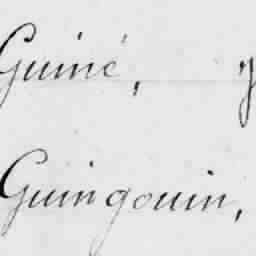 Guiné,
Guingouin,